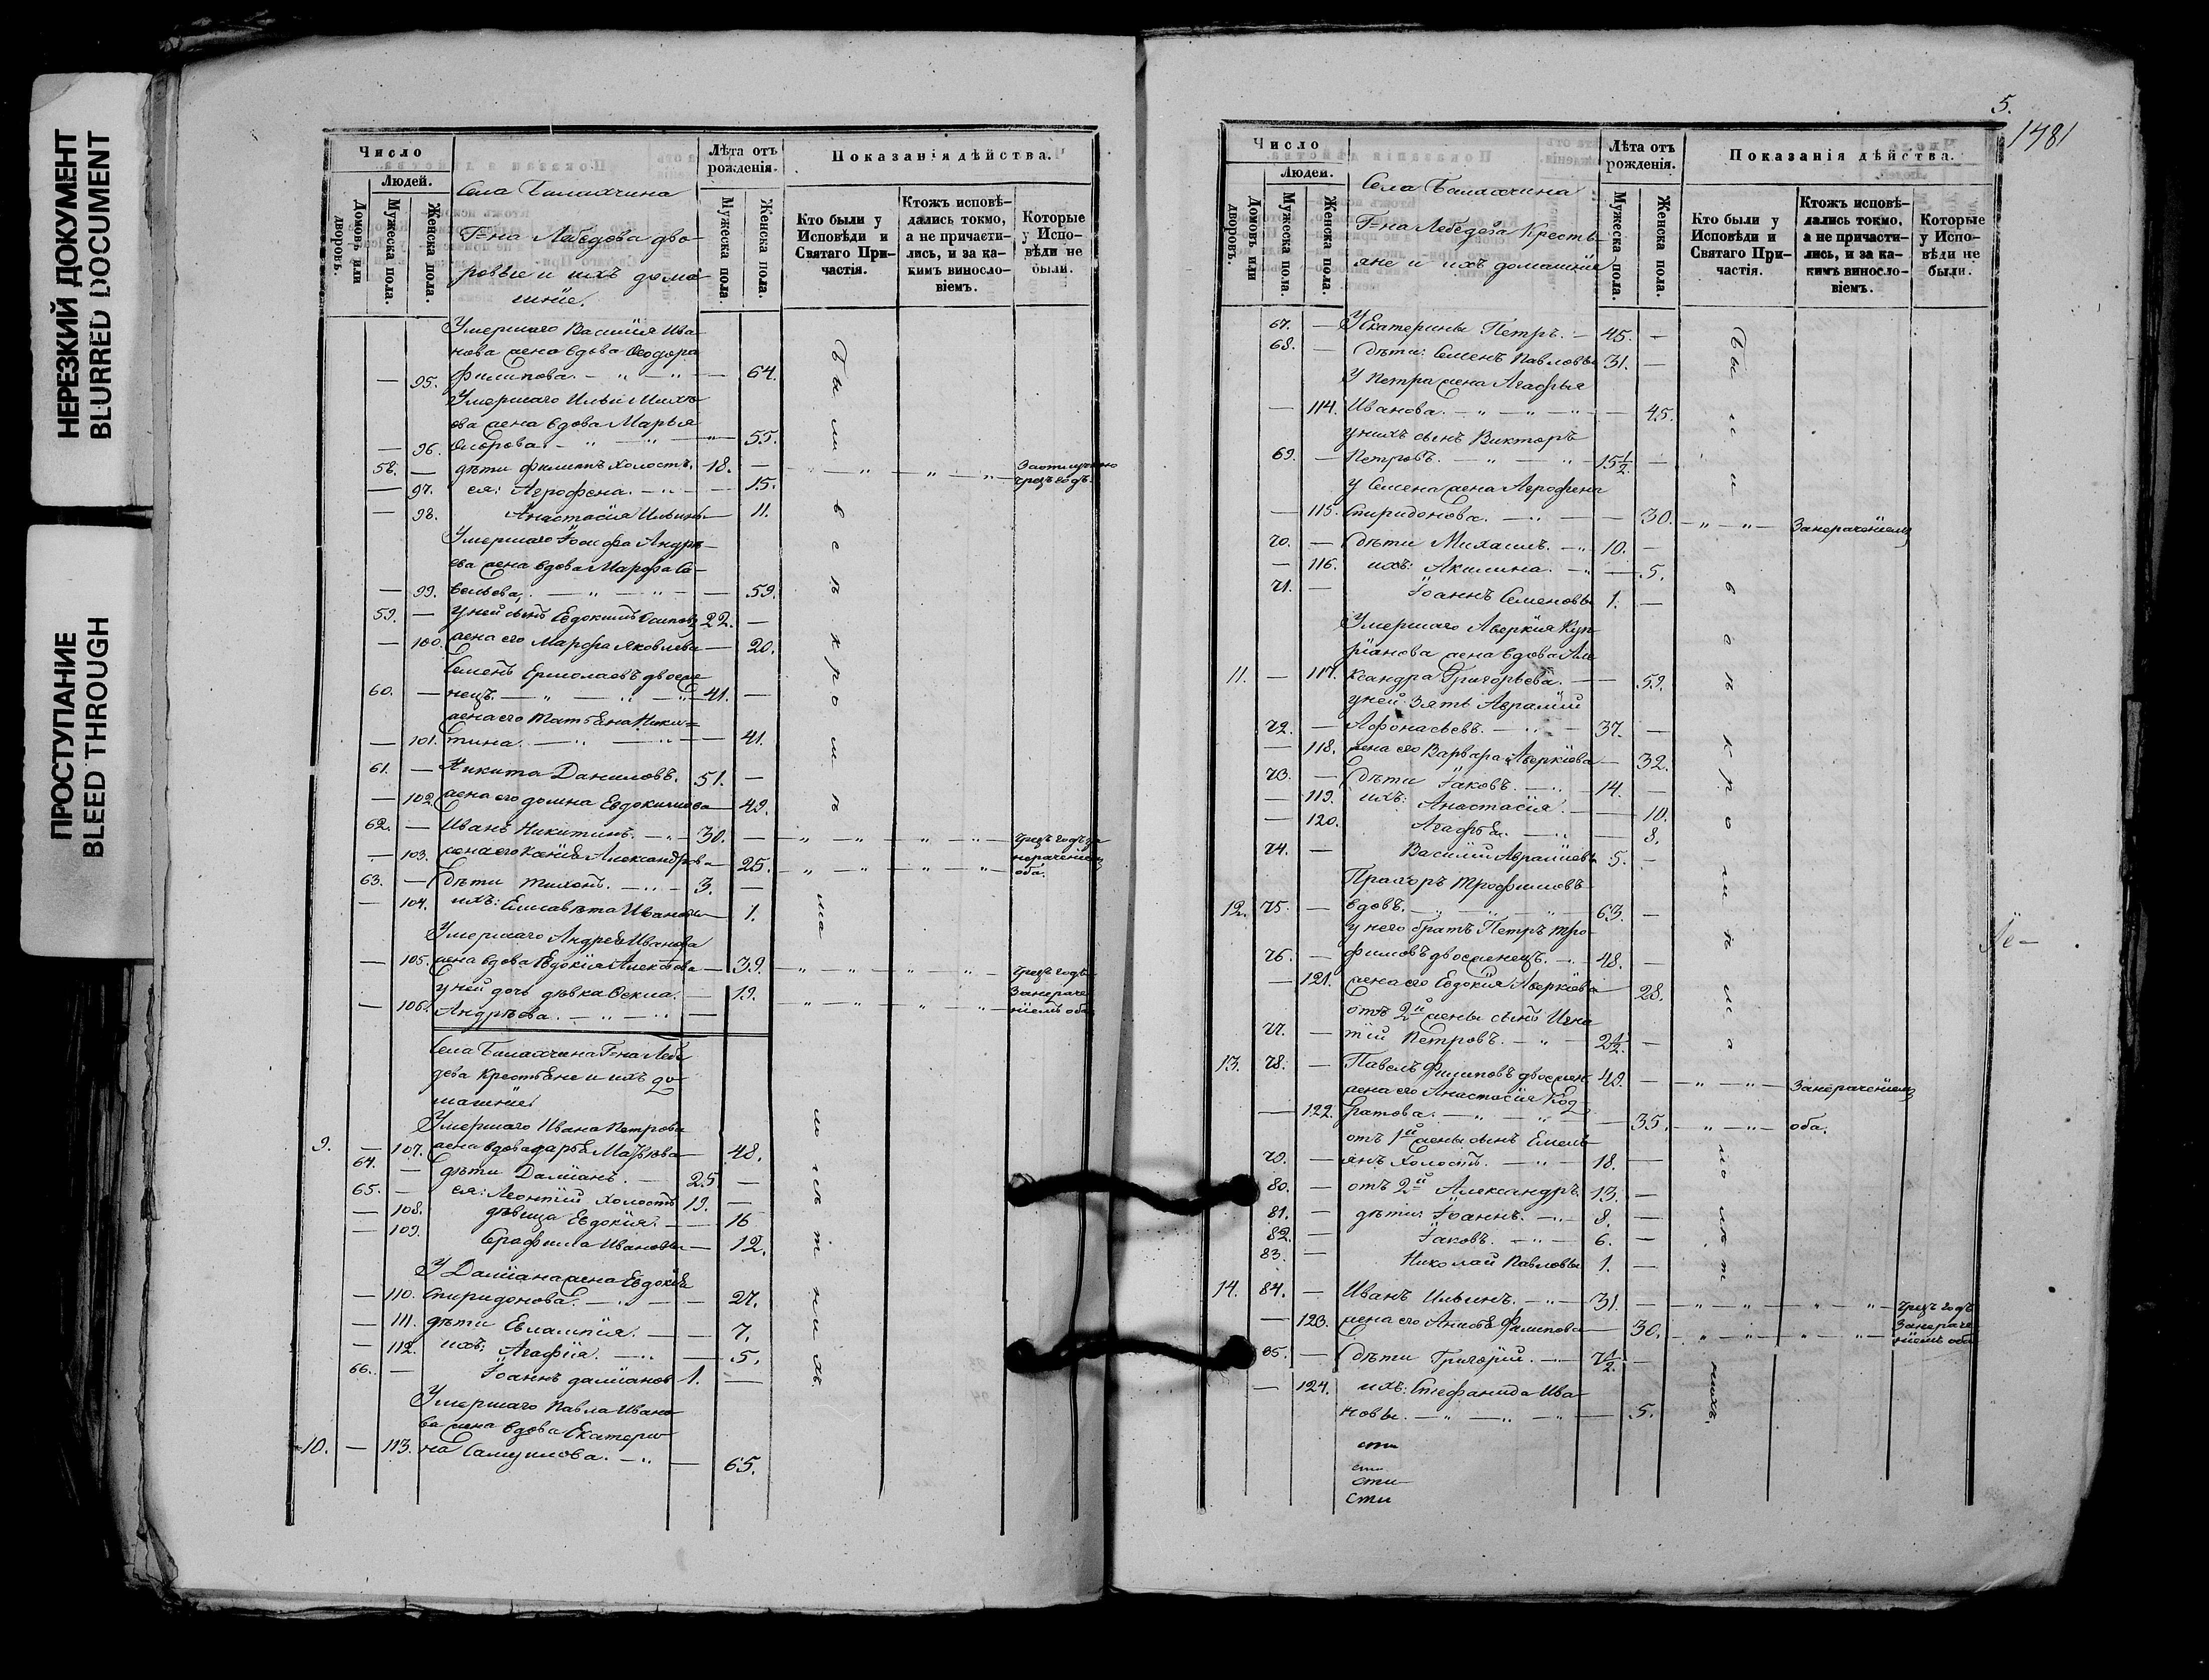 НЕРЕЗКИЙ ДОКУМЕНТ
BLURRED DOCUMENT
ПРОСТУПАНИЕ
BLEED THROUGH
Число
Людей.
Домовъ или дворовъ.
Мужеска пола.
Женска пола.
Лѣта отъ рожденія.
Мужеска пола.
Женска пола.
Показанія дѣйства.
Кто были у Исповѣди и Святаго Причастія.
Ктожъ исповѣдались токмо, а не причастились, и за какимъ винословіемъ.
Которые у Исповѣди не были.
Г=на Лебедева дво-
ровые и ихъ дома-
шніе.
Умершаго Василія Ива-
нова жена вдова Ѳеодора
— 95. Филипова. — „ — „ — 64.
Умершаго Ильи
жена вдова Марья
— 96. — „ — „ — 55.
58. — дѣти Филипъ холостъ. 18. —
— 97. ея: Агрофена. — „ — 15.
— 98. Анастасія Ильины — 11.
Умершаго Іосифа Андрѣ-
ева жена вдова Марфа Са-
— 99. вельева, — „ — „ — 59.
59. — у ней сынъ Евдокимъ Осиповъ 22. —
— 100. жена его Марфа Яковлева — 20.
Семенъ Ермолаевъ двоже-
60. — нецъ. — „ — „ — 41. —
жена его Татьяна Ники=
— 101. тина. — „ — „ — 41.
61. — Никита Даниловъ. 51. —
— 102. жена его Домна Евдокимова — 49.
62. — Иванъ Никитинъ. — „ — 30. —
— 103. жена его Ксенія Александрова — 25.
63. — дѣти Тихонъ. — „ — 3. —
— 104. ихъ: Елисавѣта Ивановы — 1.
Умершаго Андрея Иванова
— 105. жена вдова Евдокія — 39.
у ней дочь дѣвка — 19.
— 106. Андрѣева. — „ — „ —
Г=на Лебе
дева Крестьяне и ихъ до-
машніе.
Умершаго Ивана Петрова
9. — 107. жена вдова Дарья — 48.
64. — дѣти Даміанъ. — 25 —
65. — ея: Леонтій холостъ 19. —
— 108. дѣвица Евдокія. — 16
— 109. Серафима Ивановы — 12.
У Даміана жена Евдокія
— 110. Спиридонова. — „ — 27.
— 111. дѣти Евлампія. — 7.
— 112. ихъ: Агафія. — „ — 5.
66. — Іоаннъ Даміановъ 1. —
Умершаго Павла Ивано-
ва жена вдова Екатери-
10. — 113. на Самуилова. — „ — 65.
Были всѣ кромѣ малолѣтнихъ
чрезъ годъ
чрезъ годъ за
нераченіемъ
оба.
чрезъ годъ
За нераче
ніемъ оба
5.
1481
Число
Людей.
Домовъ или дворовъ.
Мужеска пола.
Женска пола.
Лѣта отъ рожденія.
Мужеска пола.
Женска пола.
Показанія дѣйства.
Кто были у Исповѣди и Святаго Причастія.
Ктожъ исповѣдались токмо, а не причастились, и за какимъ винословіемъ.
Которые у Исповѣди не были.
Г=на Лебедева Кресть-
яне и ихъ домашніе
67. — У Екатерины Петръ. — 45. —
68. — дѣти: Семенъ Павловы 31. —
У Петра жена Агафья
— 114. Иванова. — „ — „ — 45.
у нихъ сынъ Викторъ
69. — Петровъ. — „ — „ 15½. —
У Семена жена Агрофена
— 115. Спиридонова. — „ — 30. — „ — „ — За нераченіемъ
70. — дѣти Михаилъ. — „ 10. —
— 116. ихъ: Акилина. — „ — 5.
71. — Іоаннъ Семеновы 1. —
Умершаго Аверкія Куп-
ріанова жена вдова Але
11. — 117. ксандра Григорьева. — 59.
у ней зять Авраамій
72. — Афонасьевъ. — „ — 37. —
— 118. жена его Варвара Аверкіева — 32.
73. — дѣти Іаковъ. — „ — 14. —
— 119. ихъ: Анастасія. — 10.
— 120. Агафья. — „ — 8.
74. — Василій Авраміевы 5. —
Прохоръ Трофимовъ
12. 75. — вдовъ. — „ — „ — 63. —
у него братъ Петръ Тро-
76. — фимовъ двоженецъ. — „ — 48. —
— 121. жена его Евдокія Аверкіева — 28.
отъ 2й жены сынъ Игна
77. — тій Петровъ. — „ — 2½. —
13. 78. — Павелъ Филиповъ двожен. 49. — „ — „ — За нераченіемъ
жена его Анастасія Код-
— 122. ратова. — „ — „ — 35. — „ — „ — оба.
отъ 1й жены сынъ Емель-
79. — янъ холостъ. — „ — 18. —
80. — отъ 2й Александръ. 13. —
81. — дѣти: Іоаннъ. — „ — 8. —
82. — Іаковъ. — „ — 6. —
83. — Николай Павловы 1. —
14. 84. — Иванъ Ильинъ. — „ — 31. — „ — „ — „ — „ — чрезъ годъ
— 123. жена его Анисья Филипова — 30. — „ — „ — За нераче
ніемъ оба
85. — дѣти Григорій. — „ — 7½. —
— 124. ихъ: Стефанида Ива-
новы. — „ — „ — „ — 5.
Были всѣ кромѣ малолѣтнихъ.
сти
сти
сти